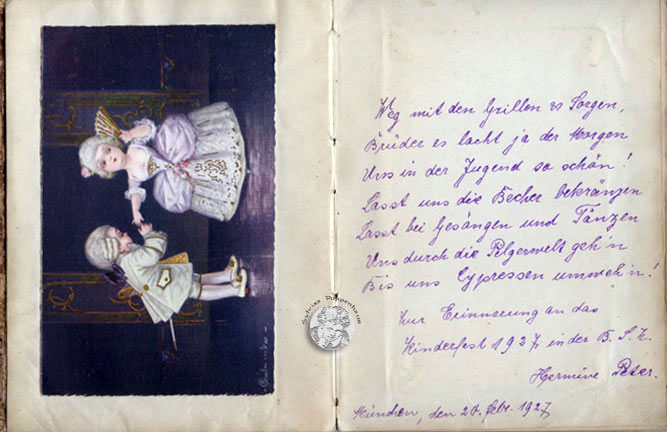 Weg mit den Grillen u Sorgen,
Brüder es lacht ja der Morgen
Uns in der Jugend so schön!
Lasst uns die Becher bekränzen
Lasst bei Gesängen und Tänzen
Uns durch die Pilgerwelt geh'n
Bis uns Cypressen umweh'n!
Zur Erinnerung an das
Kinderfest 1927 in der B. S. K.
Hermine Peter.
München, den 20. Febr. 1927
Sylvias Puppenhaus